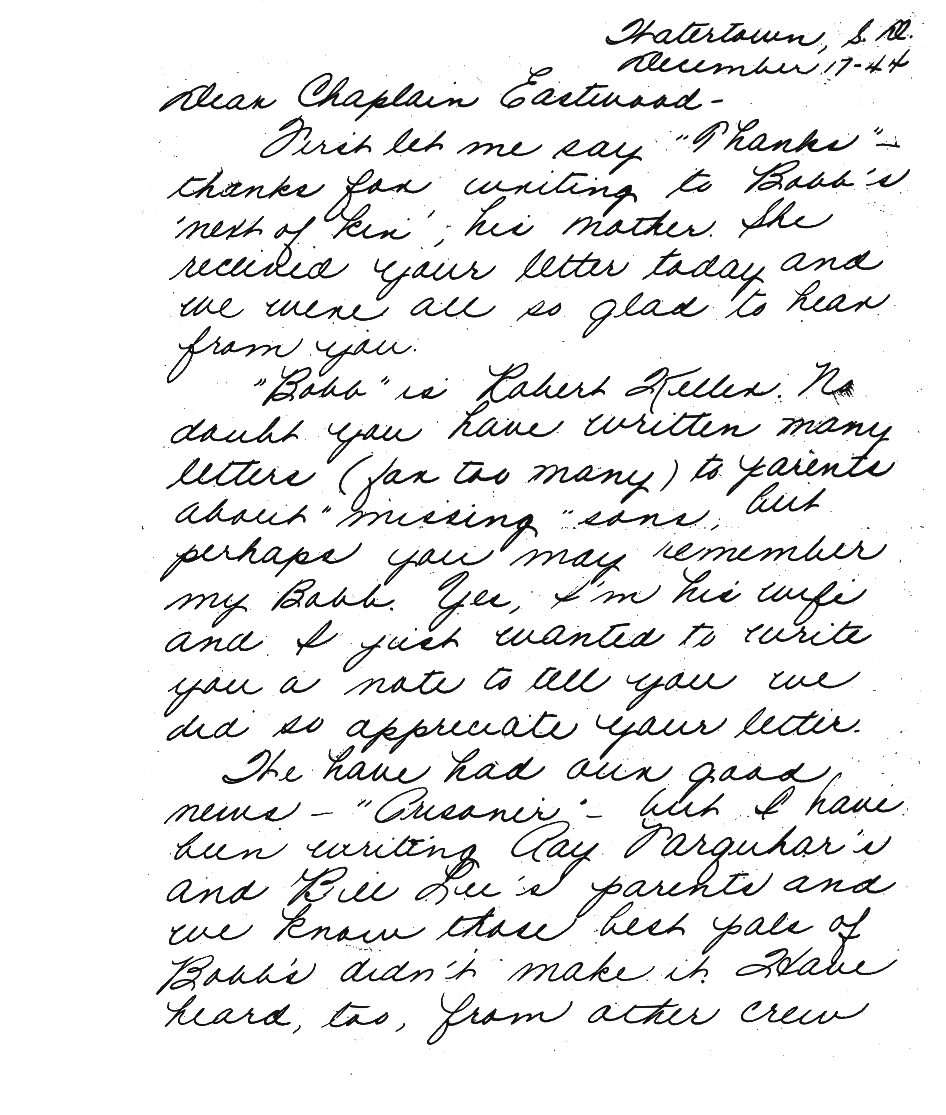 Watertown, S. D.
December 17-44
Dear Chaplain Eastwood-
First let me say "Thanks"-
thanks for writing to Bobb's
'next of kin', his mother. She
received your letter today and
we were all so glad to hear
from you.
"Bobb" is Robert Keller. No
doubt you have written many
letters (far too many) to parents
about "missing" sons, but
perhaps you may remember
my Bobb. Yes, I'm his wife
and I just wanted to write
you a note to tell you we
did so appreciate your letter.
We have had our good
news - "Prisoner" - but I have
been writing Ray Farquhar's
and Bill Lee's parents and
we know those best pals of
Bobb's didn't make it. Have
heard, too, from other crew